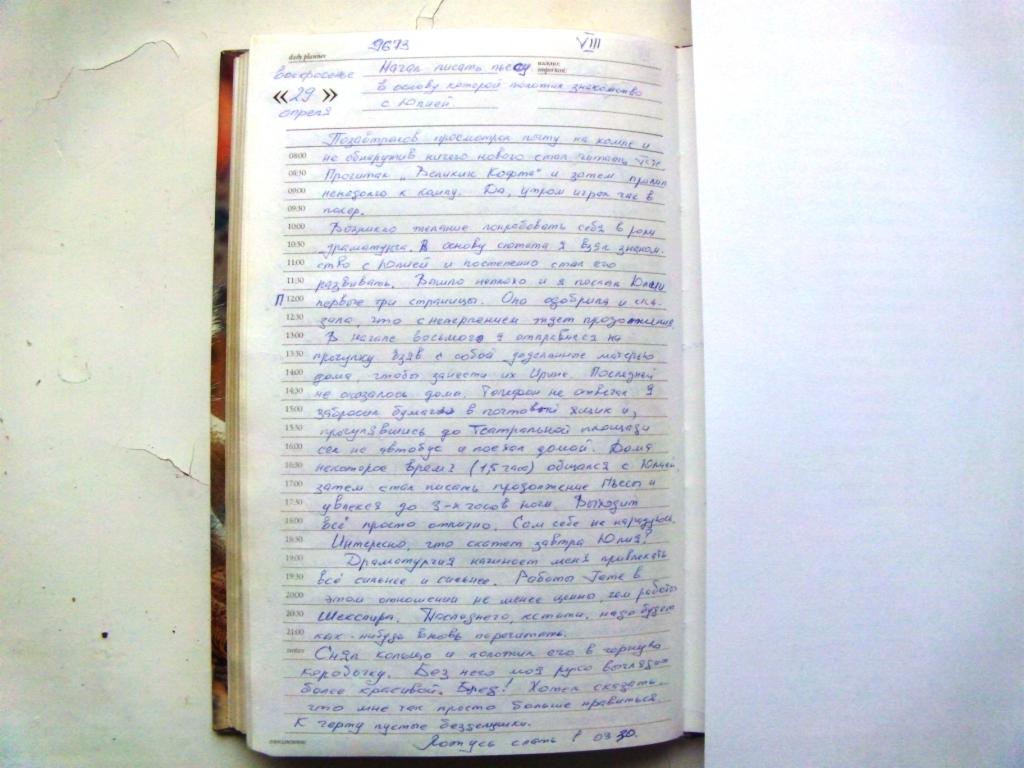 9673 VIII
daily planner
воскресенье Начал писать пьесу
« 29 » в основу которой положил знакомство
апреля с Юлией
Позавтракав просмотрел почту на компе и
08:00 не обнаружив ничего нового стал читать
08:30 Прочитал „Великий Кофта" и затем прилип
09:00 ненадолго к компу. Да, утром играл час в
09:30 покер.
10:00 Возникло желание попробовать себя в роли
10:30 драматурга. В основу сюжета я взял знаком-
11:00 ство с Юлией и постепенно стал его
11:30 развивать. Вышло неплохо и я послал Юлии
П 12:00 первые три страницы. Она одобрила и ска-
12:30 зала, что с нетерпением ждет продолжения.
13:00 В начале восьмого я отправился на
13:30 прогулку взяв с собой доделанные матерью
14:00 дома, чтобы занести их Ирине. Последней
14:30 не оказалось дома. Телефон не отвечал Я
15:00 забросил бумаги в почтовый ящик и,
15:30 прогулявшись до Театральной площади
16:00 сел на автобус и поехал домой. Дома
16:30 некоторое время (1,5 часа) общался с Юлией
17:00 затем стал писать продолжение пьесы и
17:30 увлекся до 3-х часов ночи. Выходит
18:00 всё просто отлично. Сам себе не нарадуюсь.
18:30 Интересно, что скажет завтра Юлия?
19:00 Драматургия начинает меня привлекать
19:30 всё сильнее и сильнее. Работы Гёте в
20:00 этом отношении не менее ценны чем работы
20:30 Шекспира. Последнего, кстати, надо будет
21:00 как-нибудь вновь перечитать.
notes Снял кольцо и положил его в черную
коробочку. Без него моя рука выглядит
более красивой. Бред! Хотел сказать –
что мне так просто больше нравиться.
К черту пустые безделушки.
Ложусь спать в 03 30.